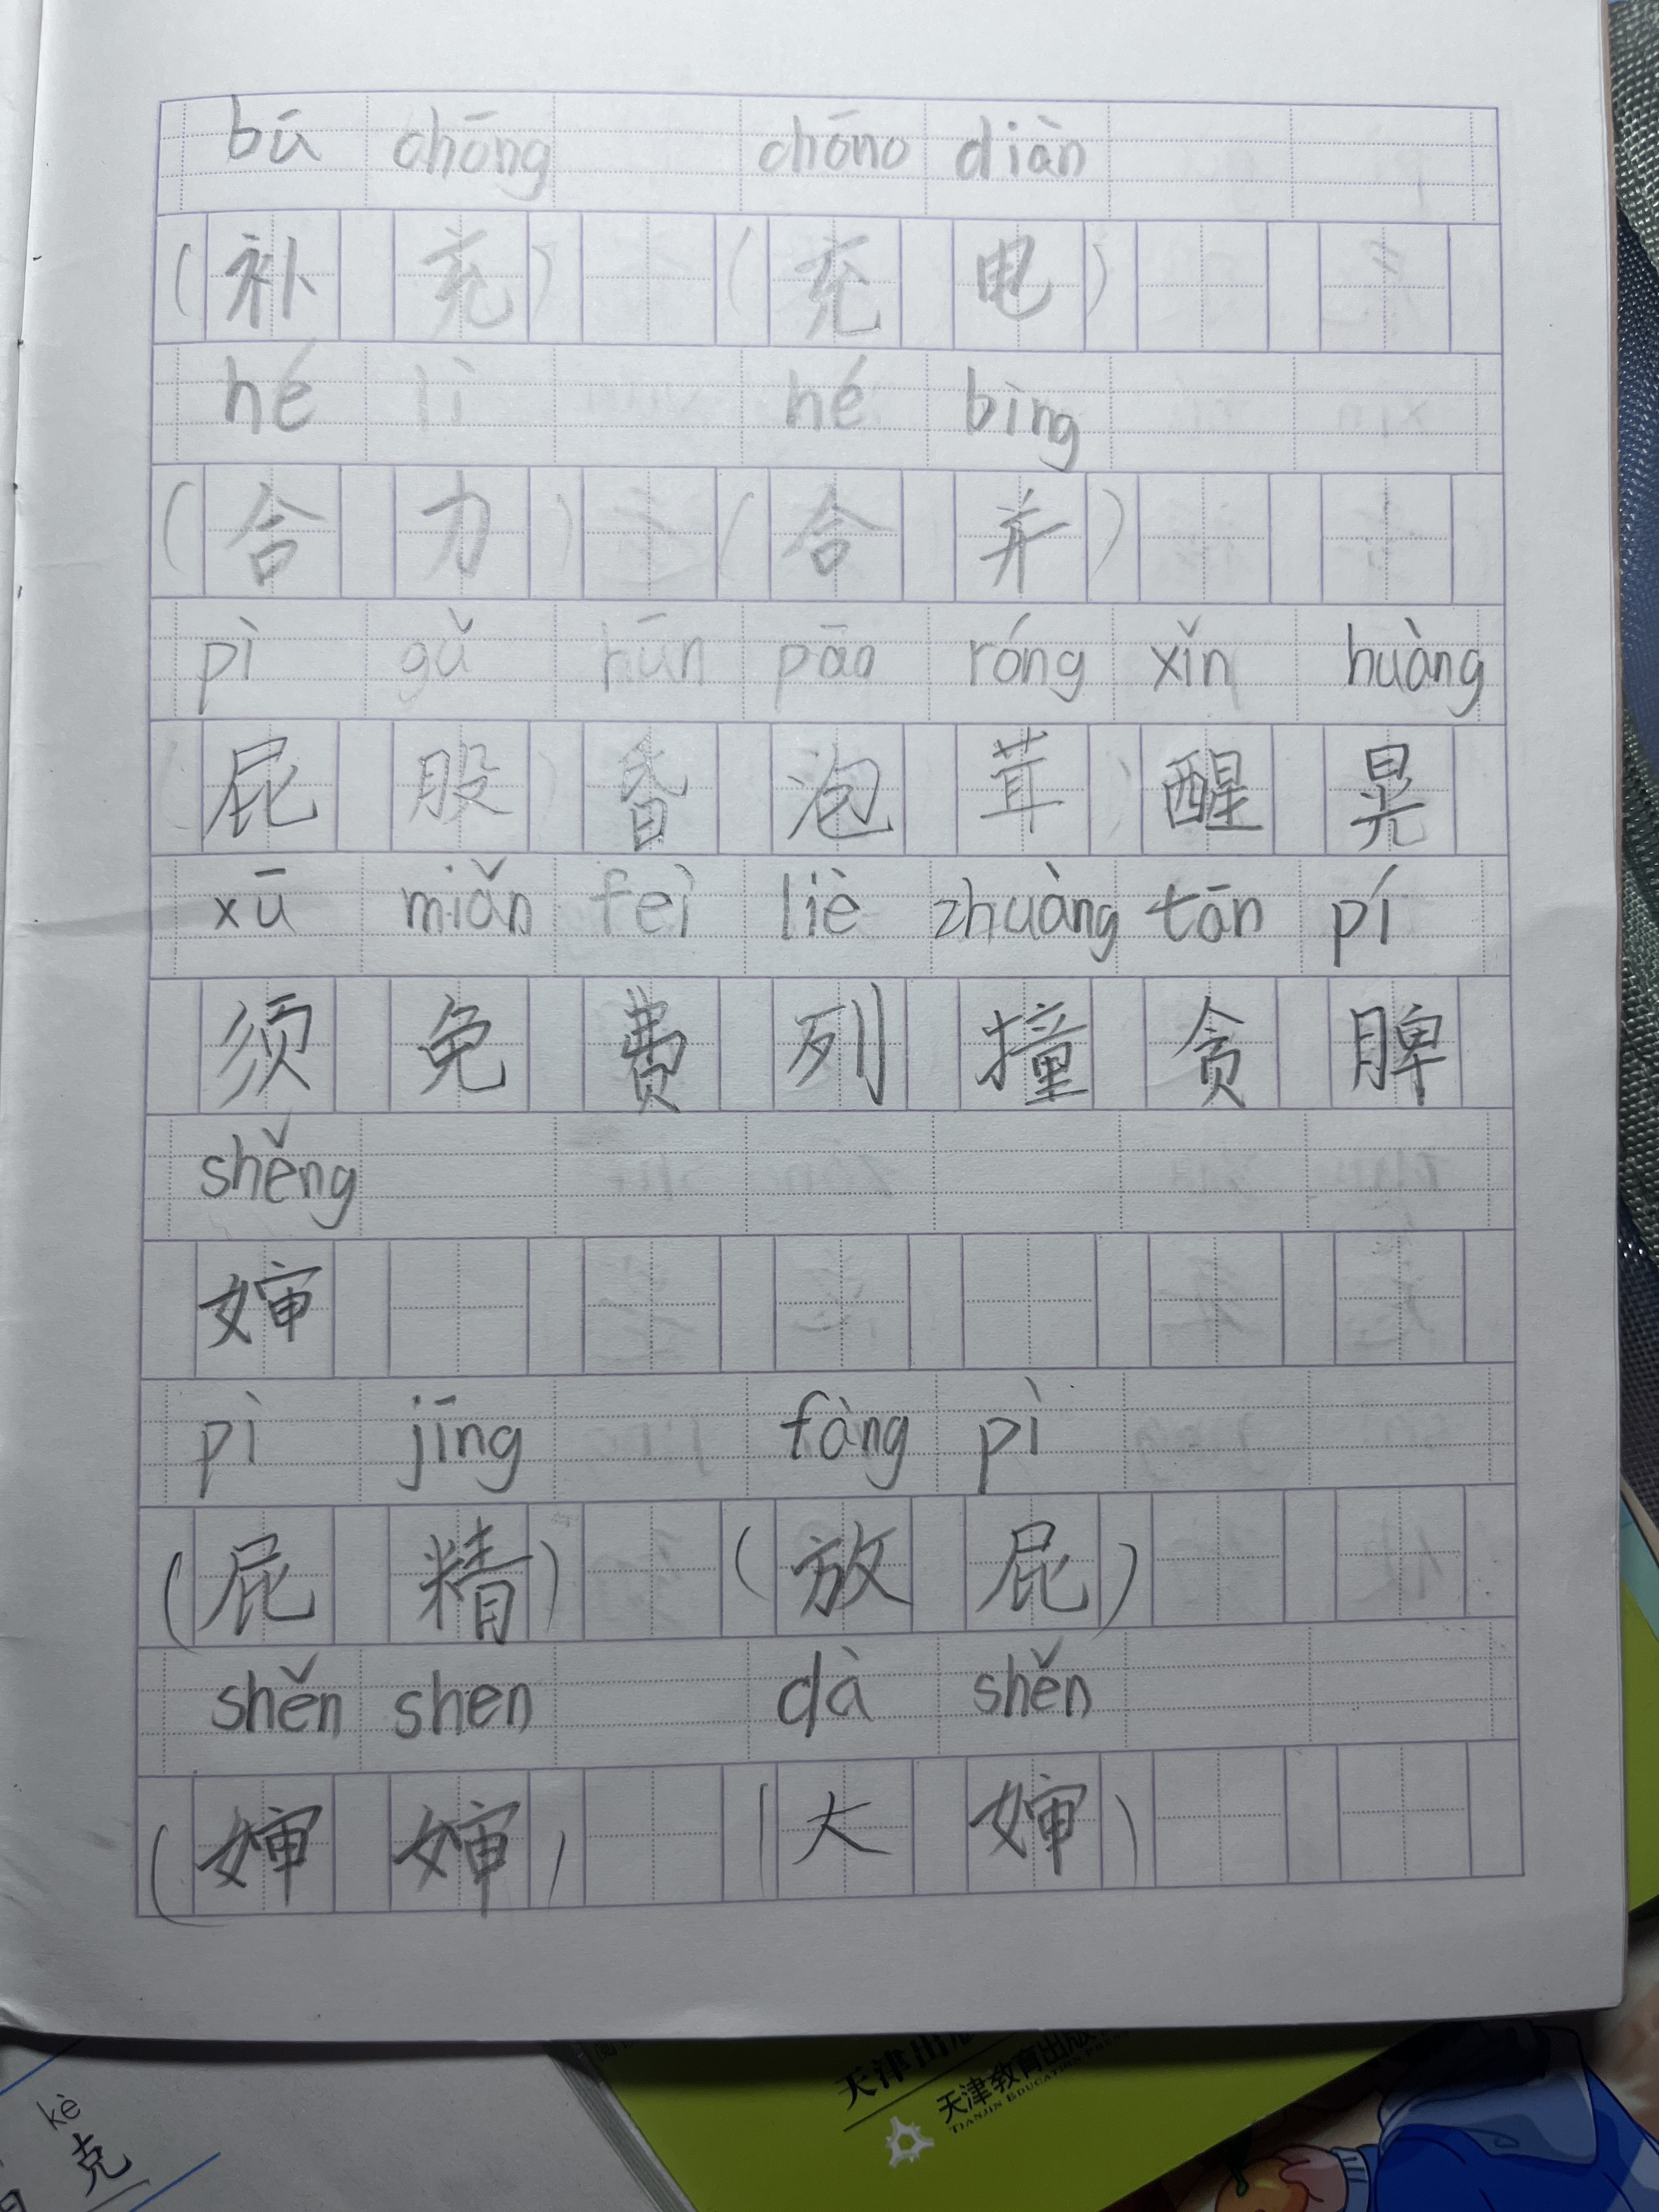 bǔ chōng chōng diàn
(补充) (充电)
hé lì hé bìng
(合力) (合并)
pì gǔ hūn pāo róng xǐn huàng
屁股昏泡茸醒晃
xū miǎn feì liè zhuàng tān pí
须免费列撞贪脾
shěng
婶
pì jīng fàng pì
(屁精) (放屁)
shěn shen dà shěn
(婶婶) (大婶)
天津出版
天津教育出版
TIANJIN EDUCATION PRESS
kè
克